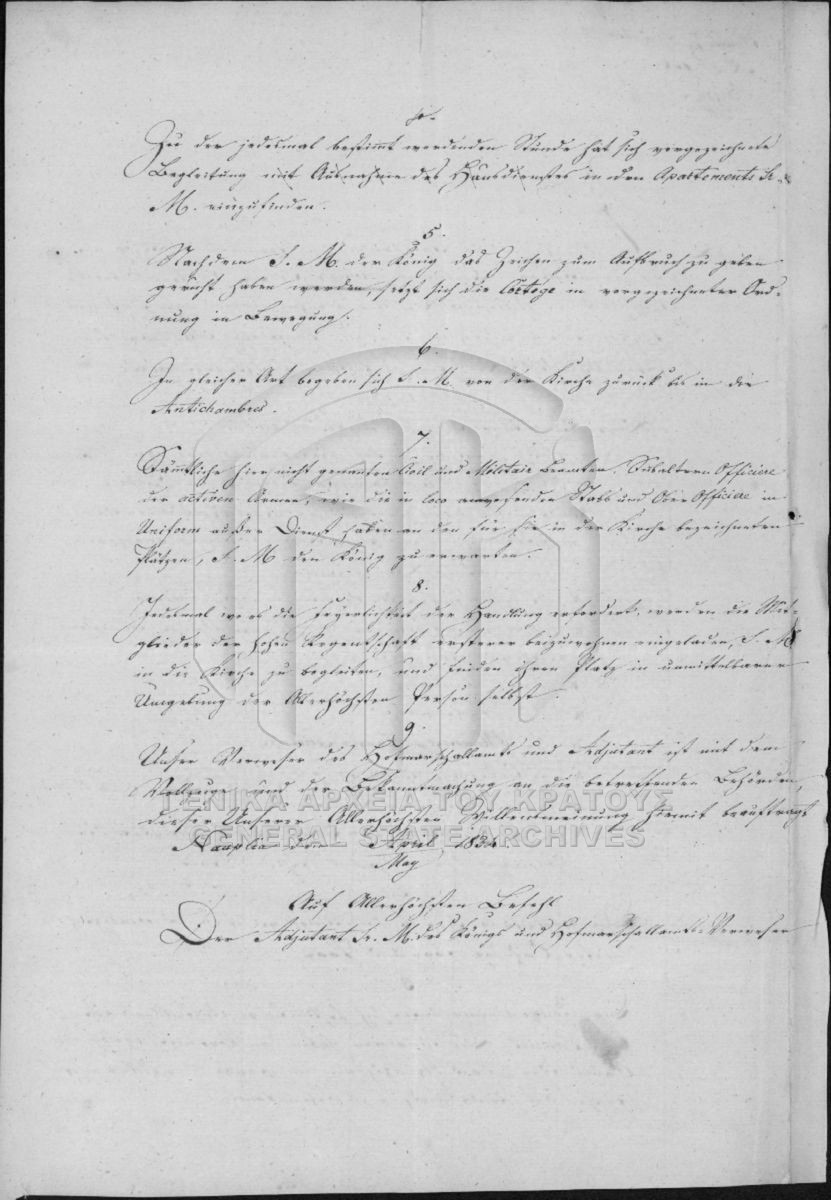 4.
Zu der jedesmal bestimmt werdenden Stunde hat sich vorgezeichnete
Begleitung mit Ausnahme des Hausdienstes in den Apartements Sr.
M. einzufinden.
5.
Nachdem S. M. der König das Zeichen zum Aufbruch zu geben
geruht haben werden, setzt sich die Cortege in vorgezeichneter Ord-
nung in Bewegung.
6.
In gleicher Art begeben sich S. M. von der Kirche zurück bis in die
Antichambres.
7.
Sämmtliche hier nicht genannten Civil und Militair Beamten, Subaltern Officiere
der activen Armee, wie die in loco anwesenden Stabs und Ober Officiere in
Uniform außer Dienst haben an den für sie in der Kirche bezeichneten
Plätzen, S. M. den König zu erwarten.
8.
Jedesmal wo es die Feyerlichkeit der Handlung erfordert, werden die Mit-
glieder der hohen Regentschaft ersterer beizuwohnen eingeladen, S. M.
in die Kirche zu begleiten, und finden ihren Platz in unmittelbarer
Umgebung der Allerhöchsten Person selbst.
9.
Unser Verweser des Hofmarschallamts und Adjutant ist mit dem
Vollzuge und der Bekanntmachung an die betreffenden Behörden,
dieser Unserer Allerhöchsten Willensmeinung hiermit beauftragt
Nauplia den April 1834
May
Auf Allerhöchsten Befehl
Der Adjutant Sr. M. des Königs und Hofmarschallamts-Verweser
ΓΕΝΙΚΑ ΑΡΧΕΙΑ ΤΟΥ ΚΡΑΤΟΥΣ
GENERAL STATE ARCHIVES